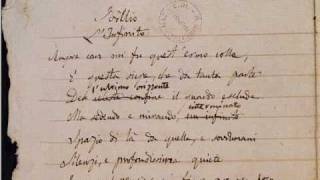 Idillio
L'Infinito
Sempre caro mi fu quest'ermo colle,
E questa siepe che da tanta parte
l'ultimo orizzonte
De il guardo esclude.
interminato
Ma sedendo e mirando, un infinito
Spazio di là da quella, e sovrumani
Silenzi, e profondissima quiete